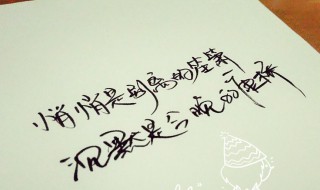 悄悄是别离的笙箫
沉默是今晚的康桥